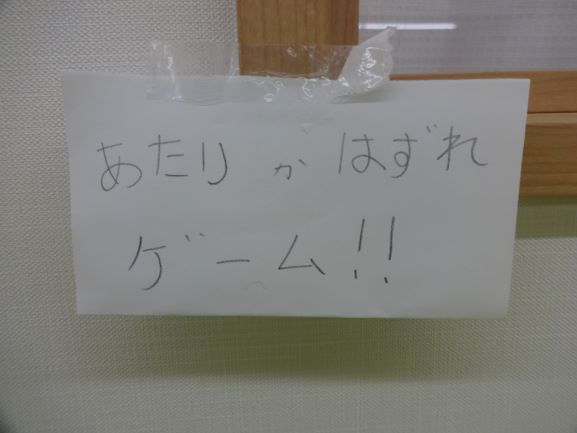 あたり か はずれ
ゲーム!!